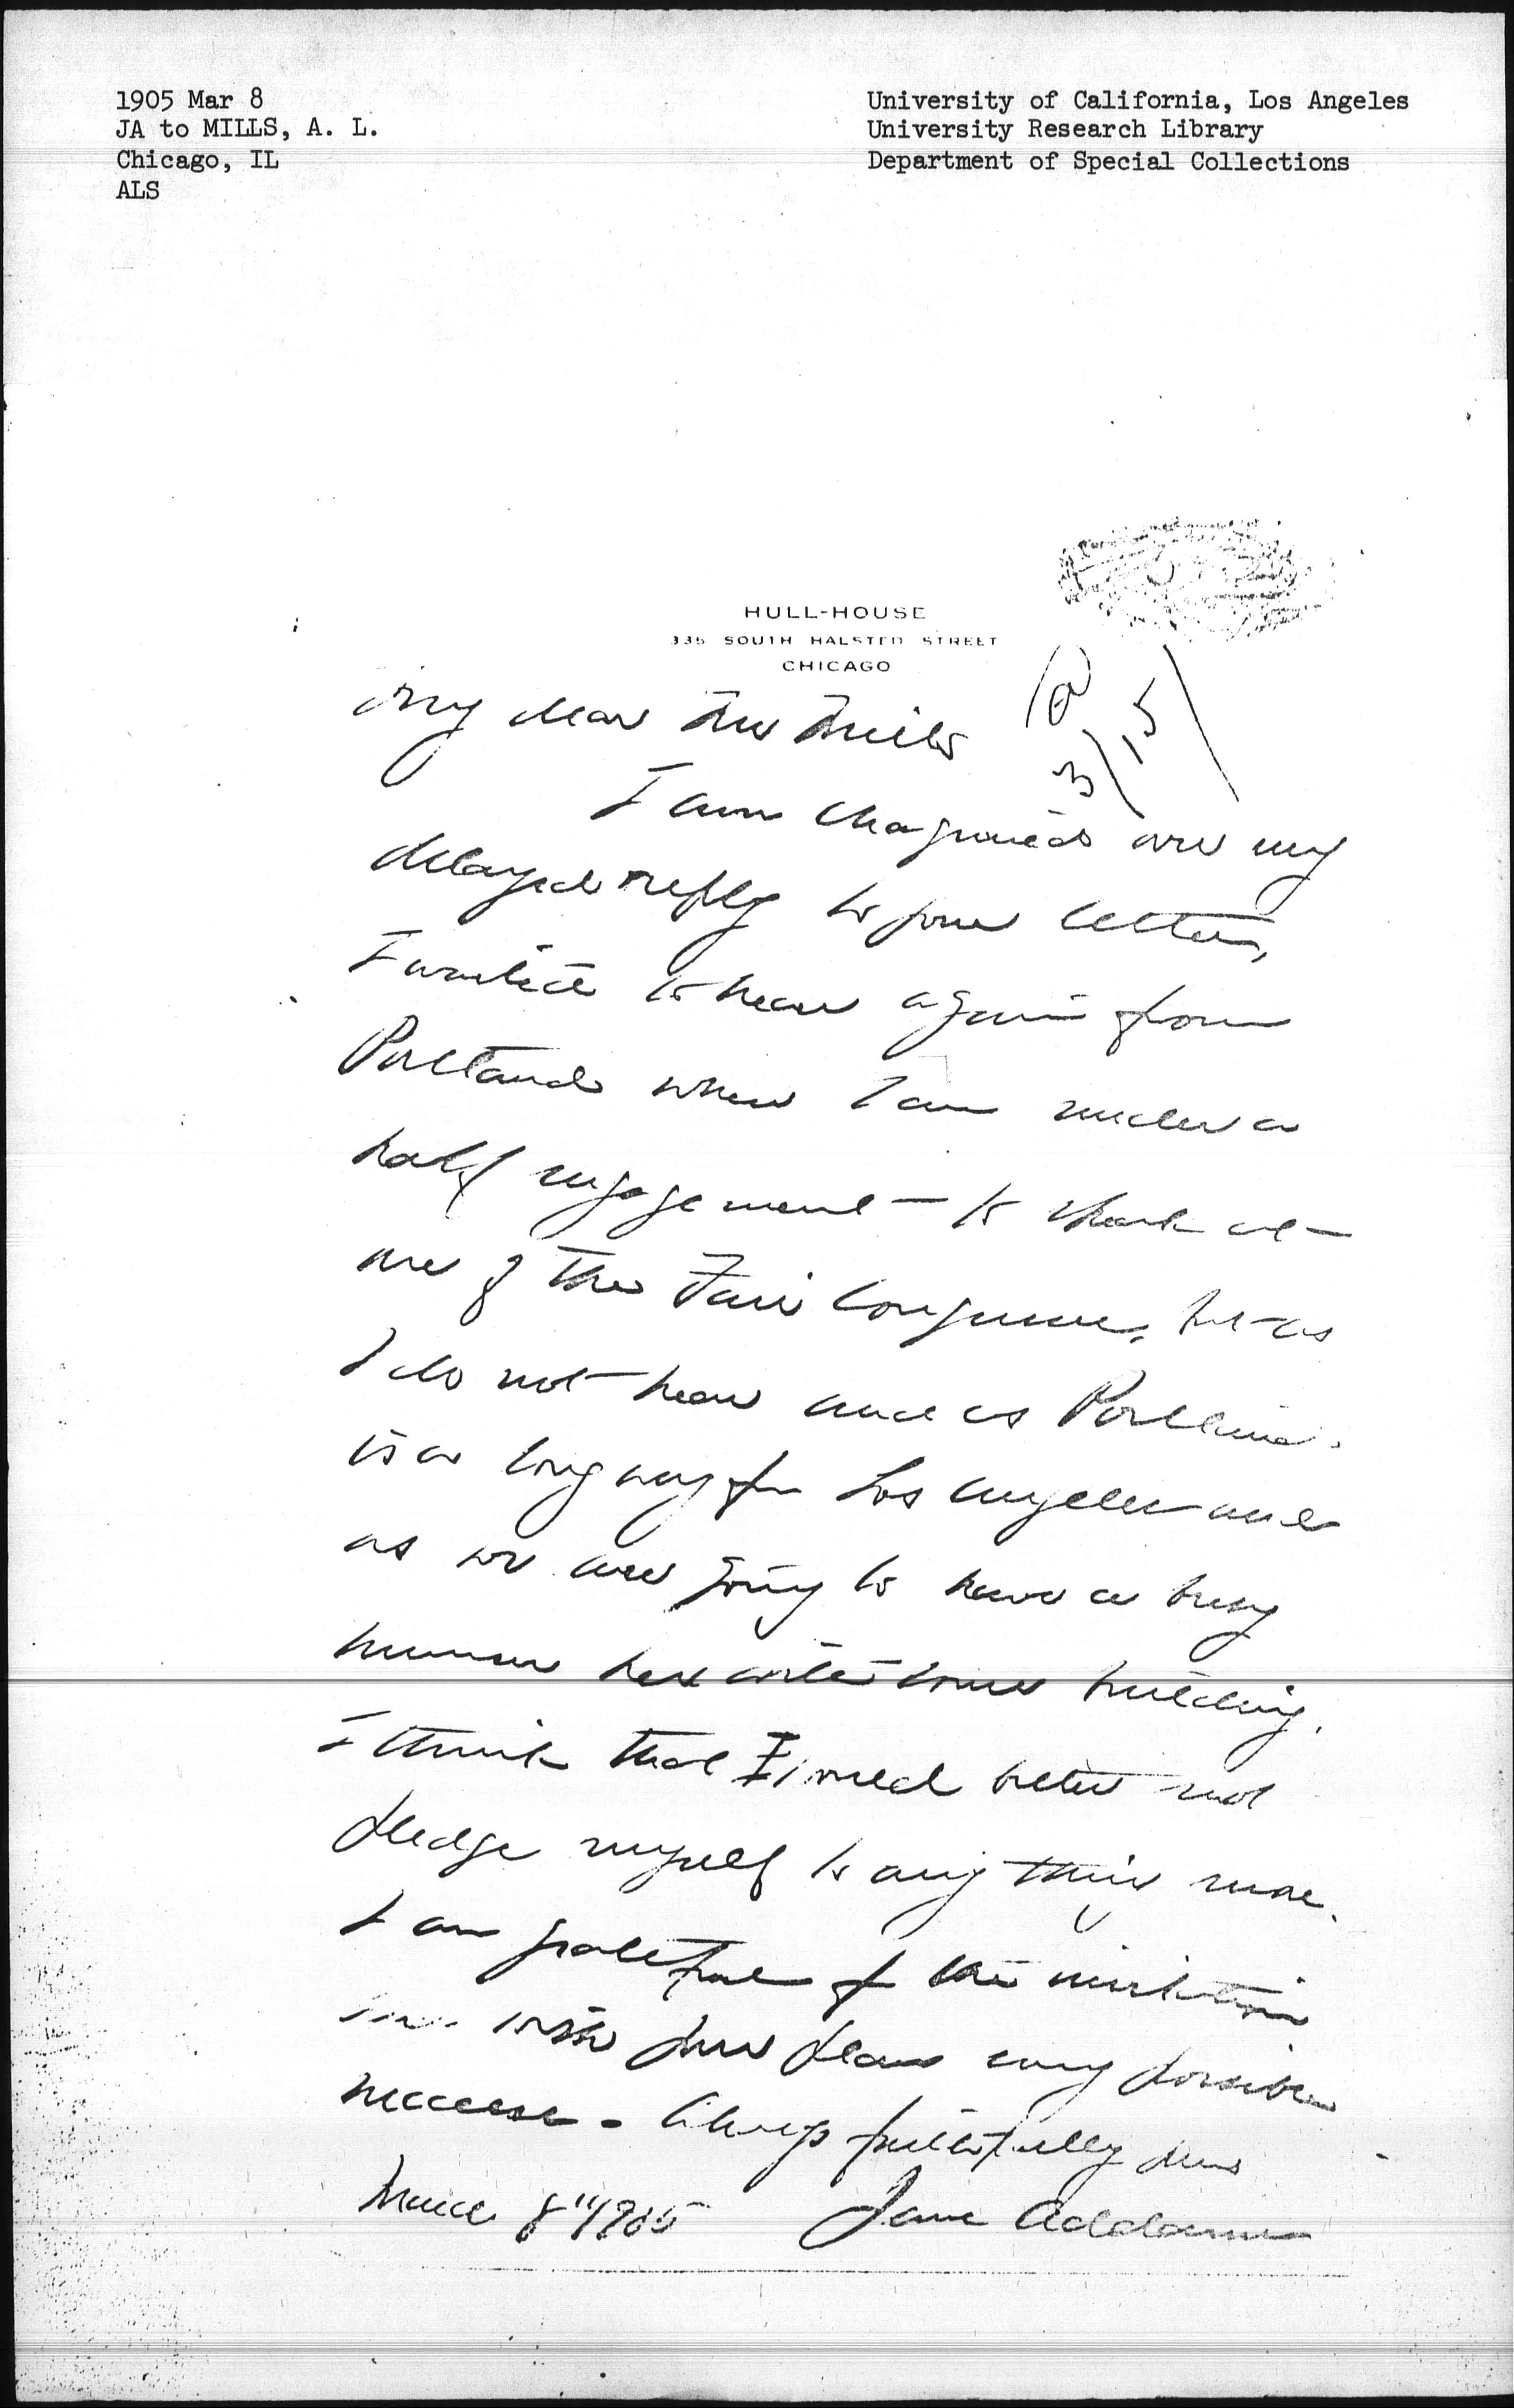 1905 Mar 8
JA to MILLS, A. L.
Chicago, IL
ALS
University of California, Los Angeles
University Research Library
Department of Special Collections
HULL-HOUSE
335 SOUTH HALSTED STREET
CHICAGO
3/15
My dear Mr Mills
I am chagrined over my
delayed reply to your letter,
I waited to hear again from
Portland where I am under a
half engagement to speak at
one of the Fair Congresses, but as
I do not hear and as Portland
is a long way from Los Angeles and
as we are going to have a busy
summer here with some building,
I think that I would better not
pledge myself to any thing more.
I am grateful for the invitation
and wish your plans every possible
success - Always faithfully yours
March 8" 1905 Jane Addams